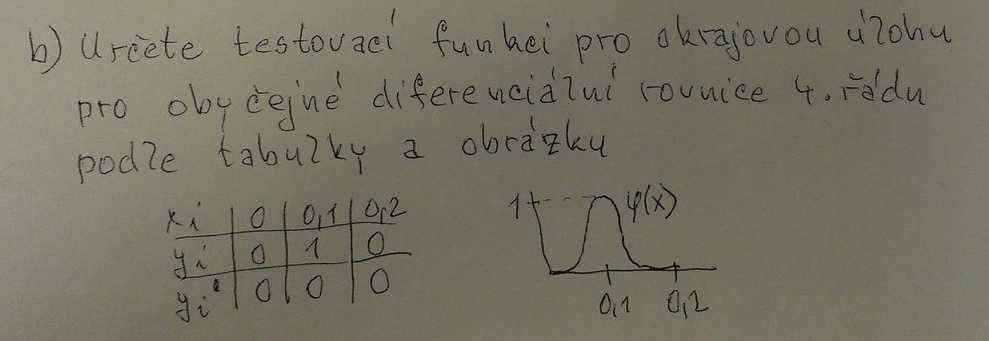 b) Určete testovací funkci pro okrajovou úlohu
pro obyčejné diferenciální rovnice 4. řádu
podle tabulky a obrázku
xi 0 0,1 0,2
yi 0 1 0
yi' 0 0 0
1 φ(x)
0,1 0,2